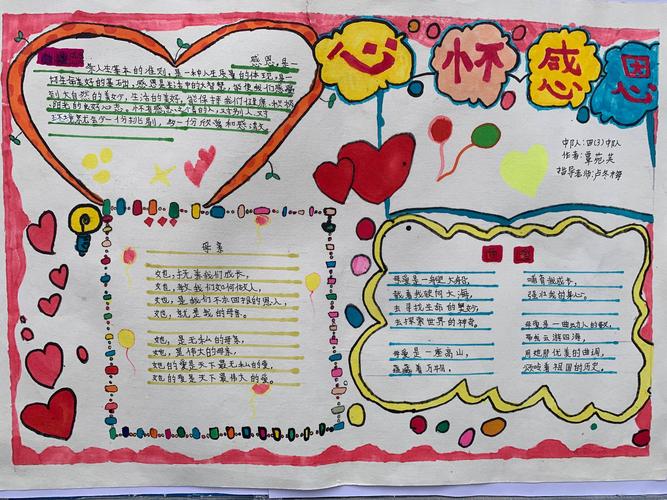 心怀感恩
感恩是一
学人生基本的准则,是一种人生质量的体现,是一
切生命美好的基础,感恩是生活中的大智慧,能使我们感受
到大自然的美妙,生活的美好,能保持我们健康、积极
阳光的良好心态。
环境就会少一份挑剔,多一份欣赏和感激
中队:四(3)中队
作者:覃苑芙
指导老师:卢冬梅
母亲
她,抚养我们成长,
她,教我们如何做人,
她,是我们不求回报的恩人,
她,就是我的母亲。
她,是无私的母亲,
她,是伟大的母亲,
她的爱是天下最无私的爱,
她的爱是天下最伟大的爱。
母爱是一艘大船,
载着我驶向大海,
去寻找生命的奥妙,
去探索世界的神奇。
母爱是一座高山,
蕴藏着万物,
哺育我成长,
强壮我的身心。
母爱是一曲动人的歌,
带我云游四海,
用她那优美的曲调,
颂唱着祖国的历史。